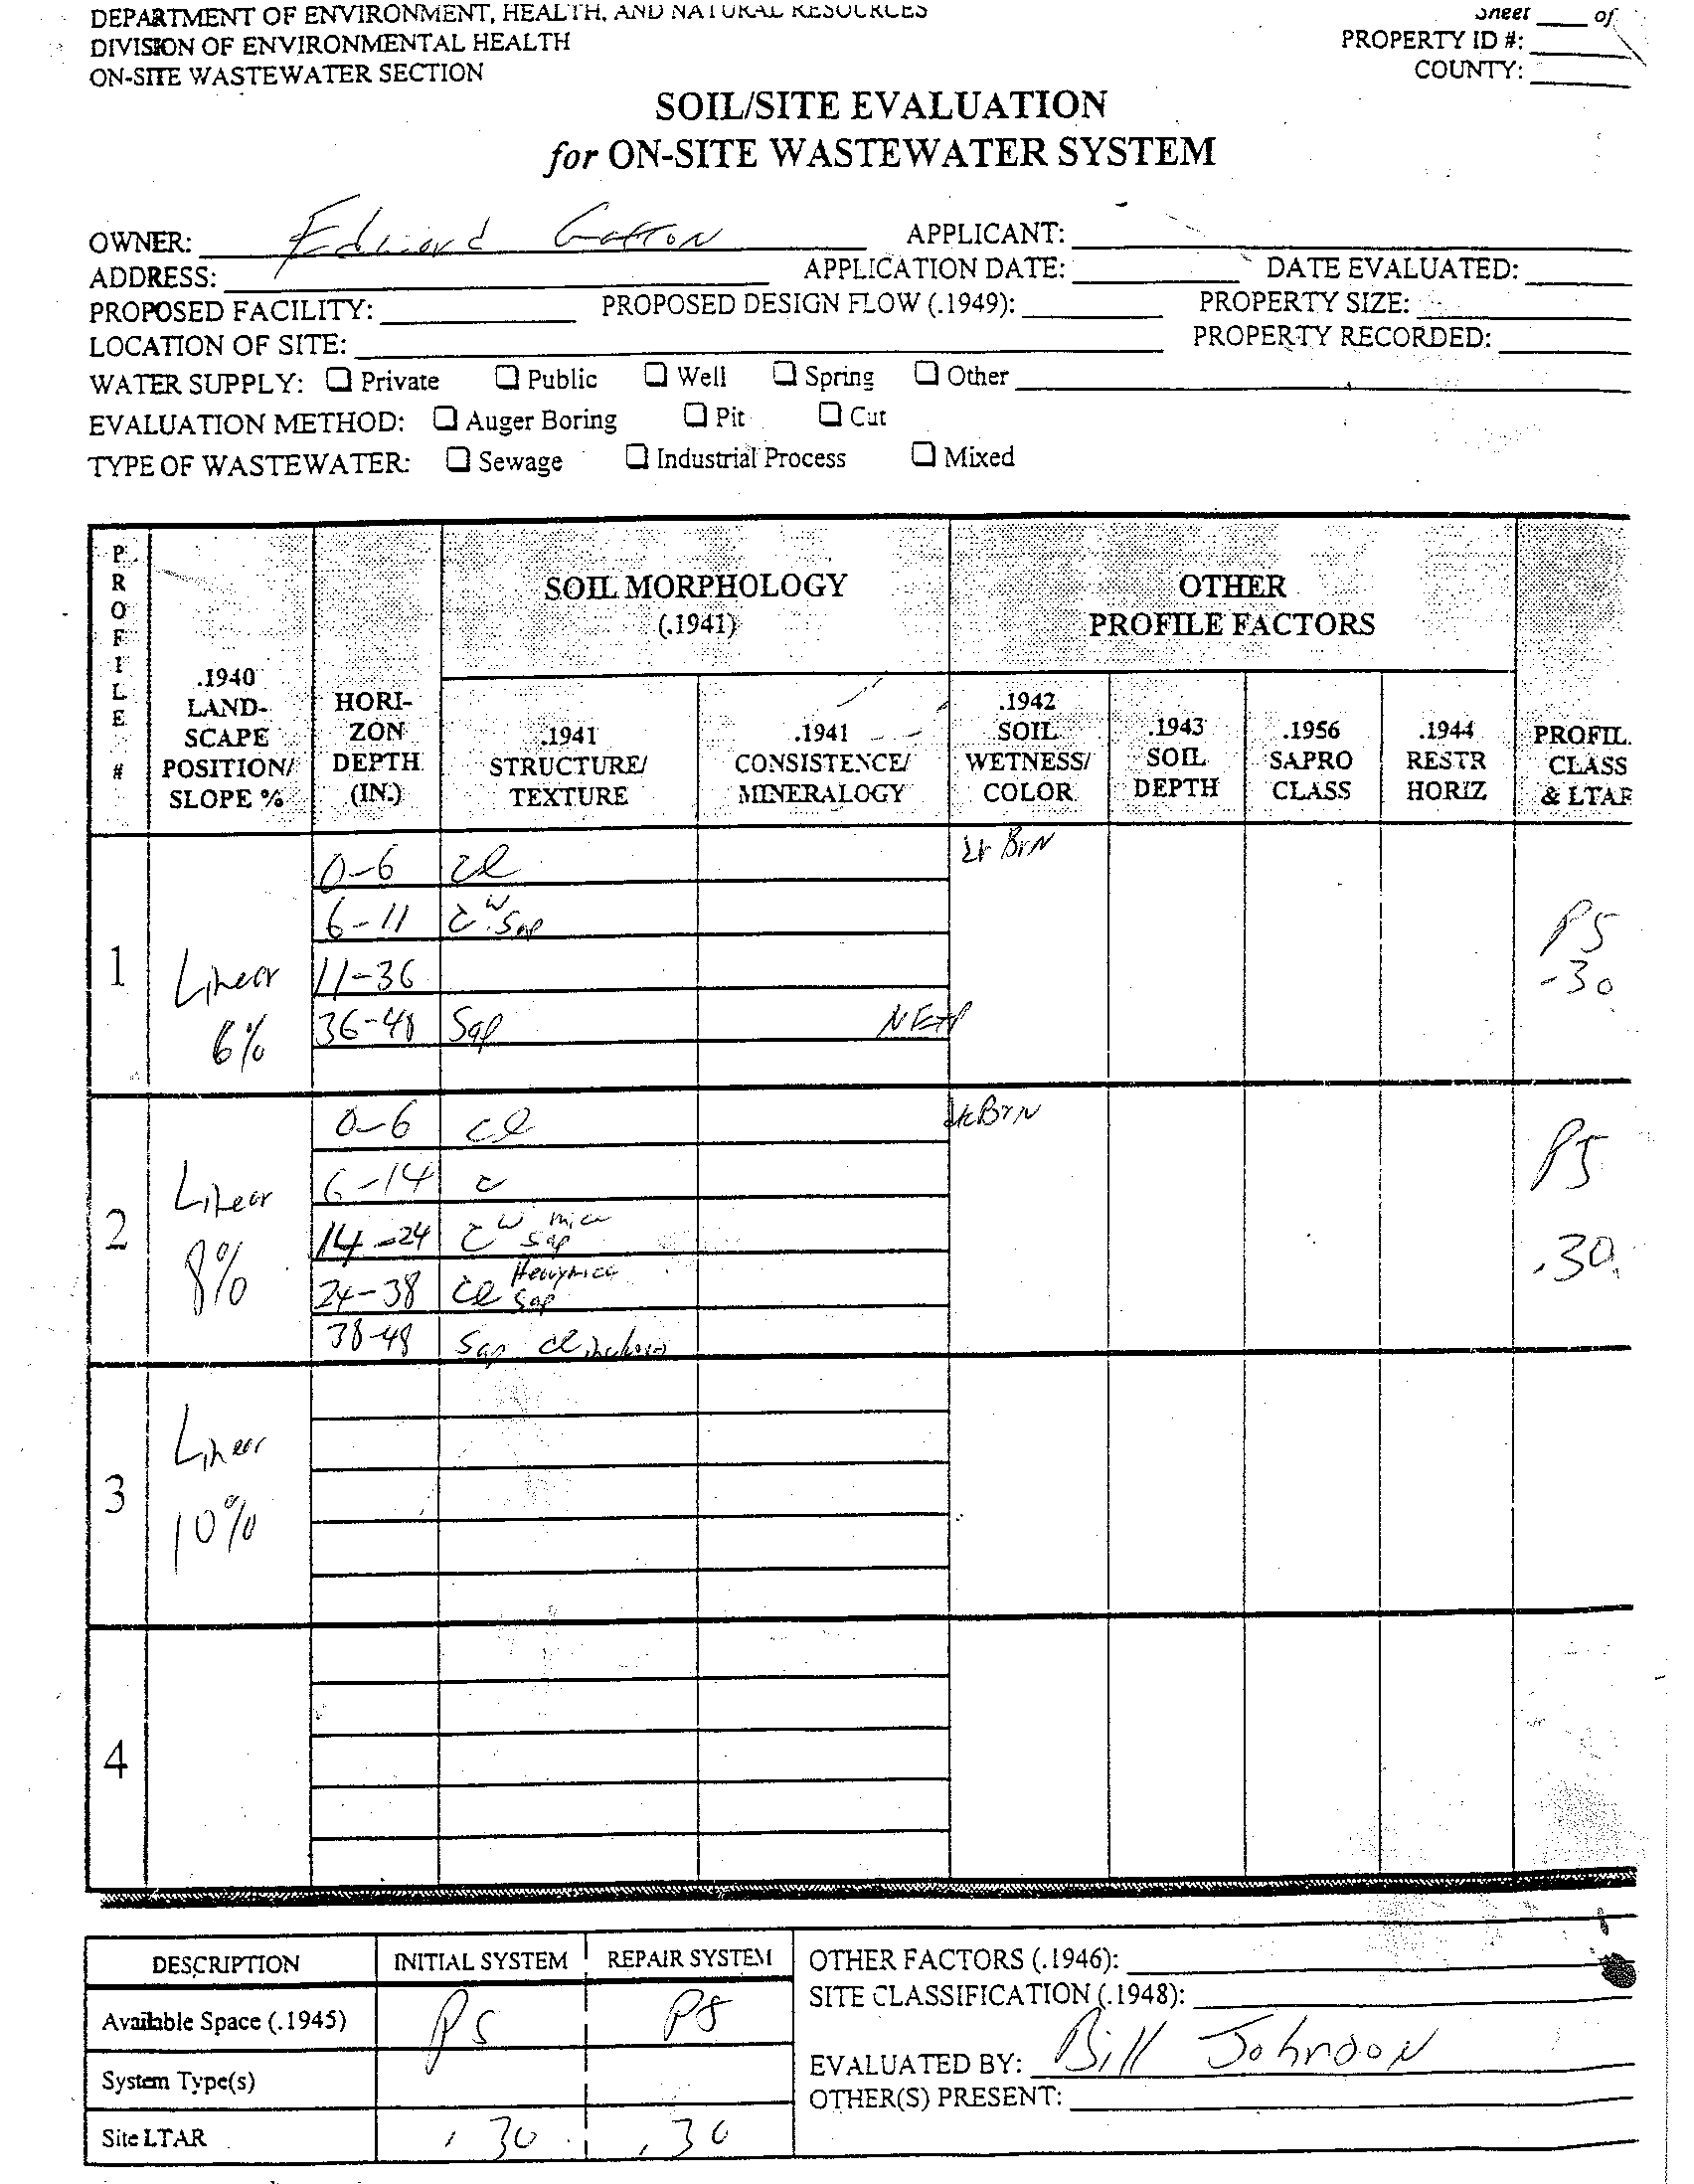 DEPARTMENT OF ENVIRONMENT, HEALTH, AND NATURAL RESOURCES
Sheet ____ of
DIVISION OF ENVIRONMENTAL HEALTH
PROPERTY ID #:
ON-SITE WASTEWATER SECTION
COUNTY:
SOIL/SITE EVALUATION
for ON-SITE WASTEWATER SYSTEM
OWNER: Edward
APPLICANT:
ADDRESS:
APPLICATION DATE:
DATE EVALUATED:
PROPOSED FACILITY:
PROPOSED DESIGN FLOW (.1949):
PROPERTY SIZE:
LOCATION OF SITE:
PROPERTY RECORDED:
WATER SUPPLY: ❏ Private ❏ Public ❏ Well ❏ Spring ❏ Other
EVALUATION METHOD: ❏ Auger Boring ❏ Pit ❏ Cut
TYPE OF WASTEWATER: ❏ Sewage ❏ Industrial Process ❏ Mixed
PROFILE #
.1940
LAND-
SCAPE
POSITION/
SLOPE %
HORI-
ZON
DEPTH
(IN.)
SOIL MORPHOLOGY
(.1941)
.1941
STRUCTURE/
TEXTURE
.1941
CONSISTENCE/
MINERALOGY
OTHER
PROFILE FACTORS
.1942
SOIL
WETNESS/
COLOR
.1943
SOIL
DEPTH
.1956
SAPRO
CLASS
.1944
RESTR
HORIZ
PROFIL.
CLASS
& LTAR
1
Linear
6%
0-6 cl
Brn
6-11 c w Sap
11-36
36-48 Sap
PS
.30
2
Linear
8%
0-6 cl
dk Brn
6-14 c
14-24 c w mica sap
24-38 cl Heavy mica sap
38-48 Sap cl inclusions
PS
.30
3
Linear
10%
4
DESCRIPTION INITIAL SYSTEM REPAIR SYSTEM
Available Space (.1945) PS PS
System Type(s)
Site LTAR .30 .30
OTHER FACTORS (.1946):
SITE CLASSIFICATION (.1948):
EVALUATED BY: Bill Johnson
OTHER(S) PRESENT: